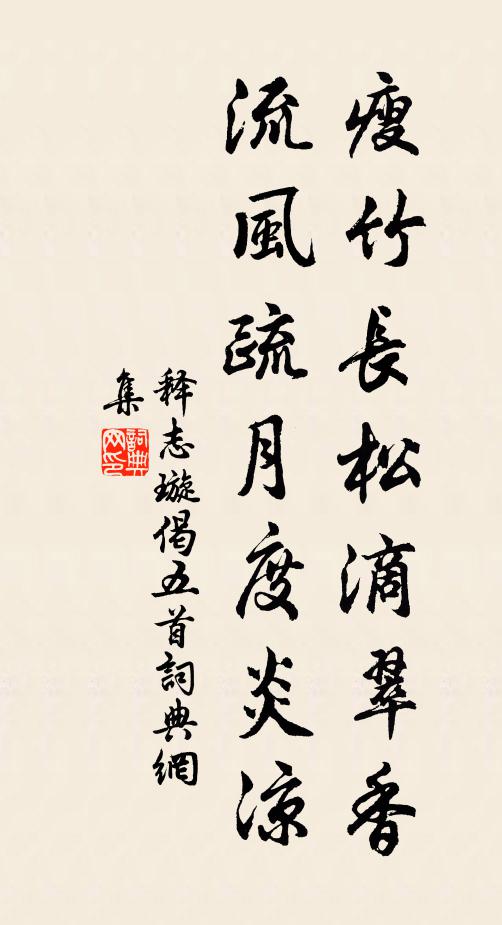 瘦竹長松滴翠香
流風疏月度炎涼
释志璇偈五首詞典網
集
詞典网印